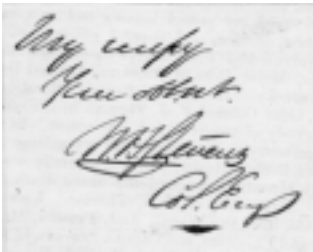 Very respy
Your obt svt.
W H Stevens
Col. Eng